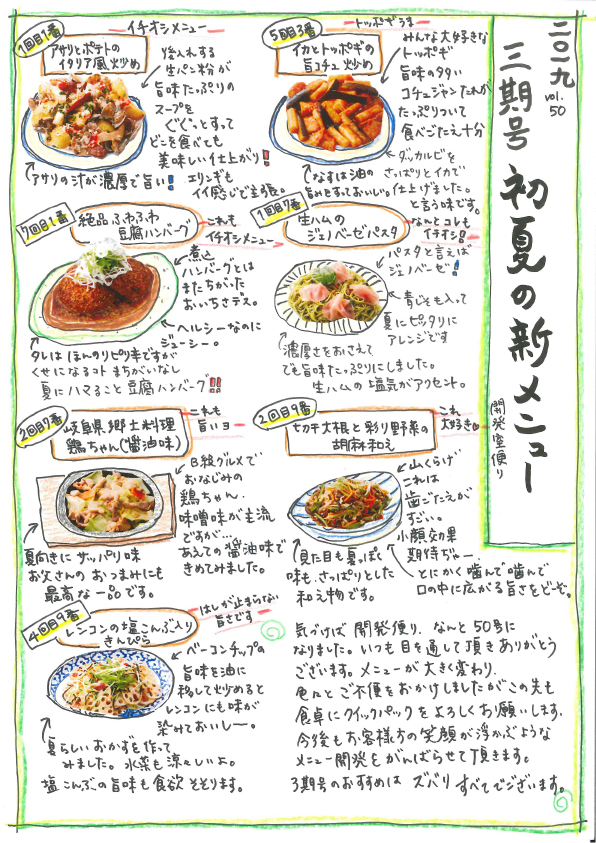 二〇一九 vol.50
三期号 初夏の新メニュー
開発室便り
1回目1番
イチオシメニュー
アサリとポテトの
イタリア風炒め
後入れする
生パン粉が
旨味たっぷりの
スープを
ぐぐっとすって
どこを食べても
美味しい仕上がり!
エリンギも
イイ感じでまる。
アサリの汁が濃厚で旨い!
5回目3番
トッポギうま
イカとトッポギの
旨コチュ炒め
みんな大好きな
トッポギ
旨味の多い
コチュジャンたれが
たっぷりついて
食べごたえ十分
ダッカルビを
さっぱりとイカで
仕上げました。
と言う味です。
なすは油の
旨味をすっておいしい。
7回目1番
絶品ふわふわ
豆腐ハンバーグ
これも
イチオシメニュー
煮込
ハンバーグとは
またちがった
おいしさデス。
ヘルシーなのに
ジューシー。
タレは ほんのりピリ辛ですが
くせになるコト まちがいなし
夏にハマること 豆腐ハンバーグ!!
1回目7番
生ハムの
ジェノベーゼパスタ
なんとコレも
イチオシ!!
パスタと言えば
ジェノベーゼ!
青じそも入って
夏にピッタリに
アレンジです
濃厚さをおさえて
でも旨味たっぷりにしました。
生ハムの塩気がアクセント。
2回目7番
岐阜県郷土料理
鶏ちゃん(醤油味)
これも
旨いヨ
B級グルメで
おなじみの
鶏ちゃん、
味噌味が主流
ですが…
あえての醤油味で
きめてみました。
夏向きに サッパリ味
お父さんの おつまみにも
最高な一品です。
2回目9番
切干大根と彩り野菜の
胡麻和え
これ
大好き
山くらげ
これは
歯ごたえが
すごい。
小顔効果
期待ぢゃー。
とにかく噛んで噛んで
口の中に広がる旨さをどーぞ。
見た目も夏っぽく
味も、さっぱりとした
和え物です。
4回目9番
レンコンの塩こんぶ入り
きんぴら
はしが止まらない
旨さです
ベーコンチップの
旨味を油に
移して炒めると
レンコンにも味が
染みておいし〜。
夏らしいおかずを作って
みました。水菜も涼々しいよ。
塩こんぶの旨味も食欲そそります。
気づけば 開発便り、なんと50号に
なりました。いつも目を通して頂きありがとう
ございます。メニューが大きく変わり、
色々とご不便をおかけしましたがこの先も
食卓にクイックパックをよろしくお願いします。
今後もお客様方の笑顔が浮かぶような
メニュー開発をがんばらせて頂きます。
3期号のおすすめは ズバリ すべてでございます。